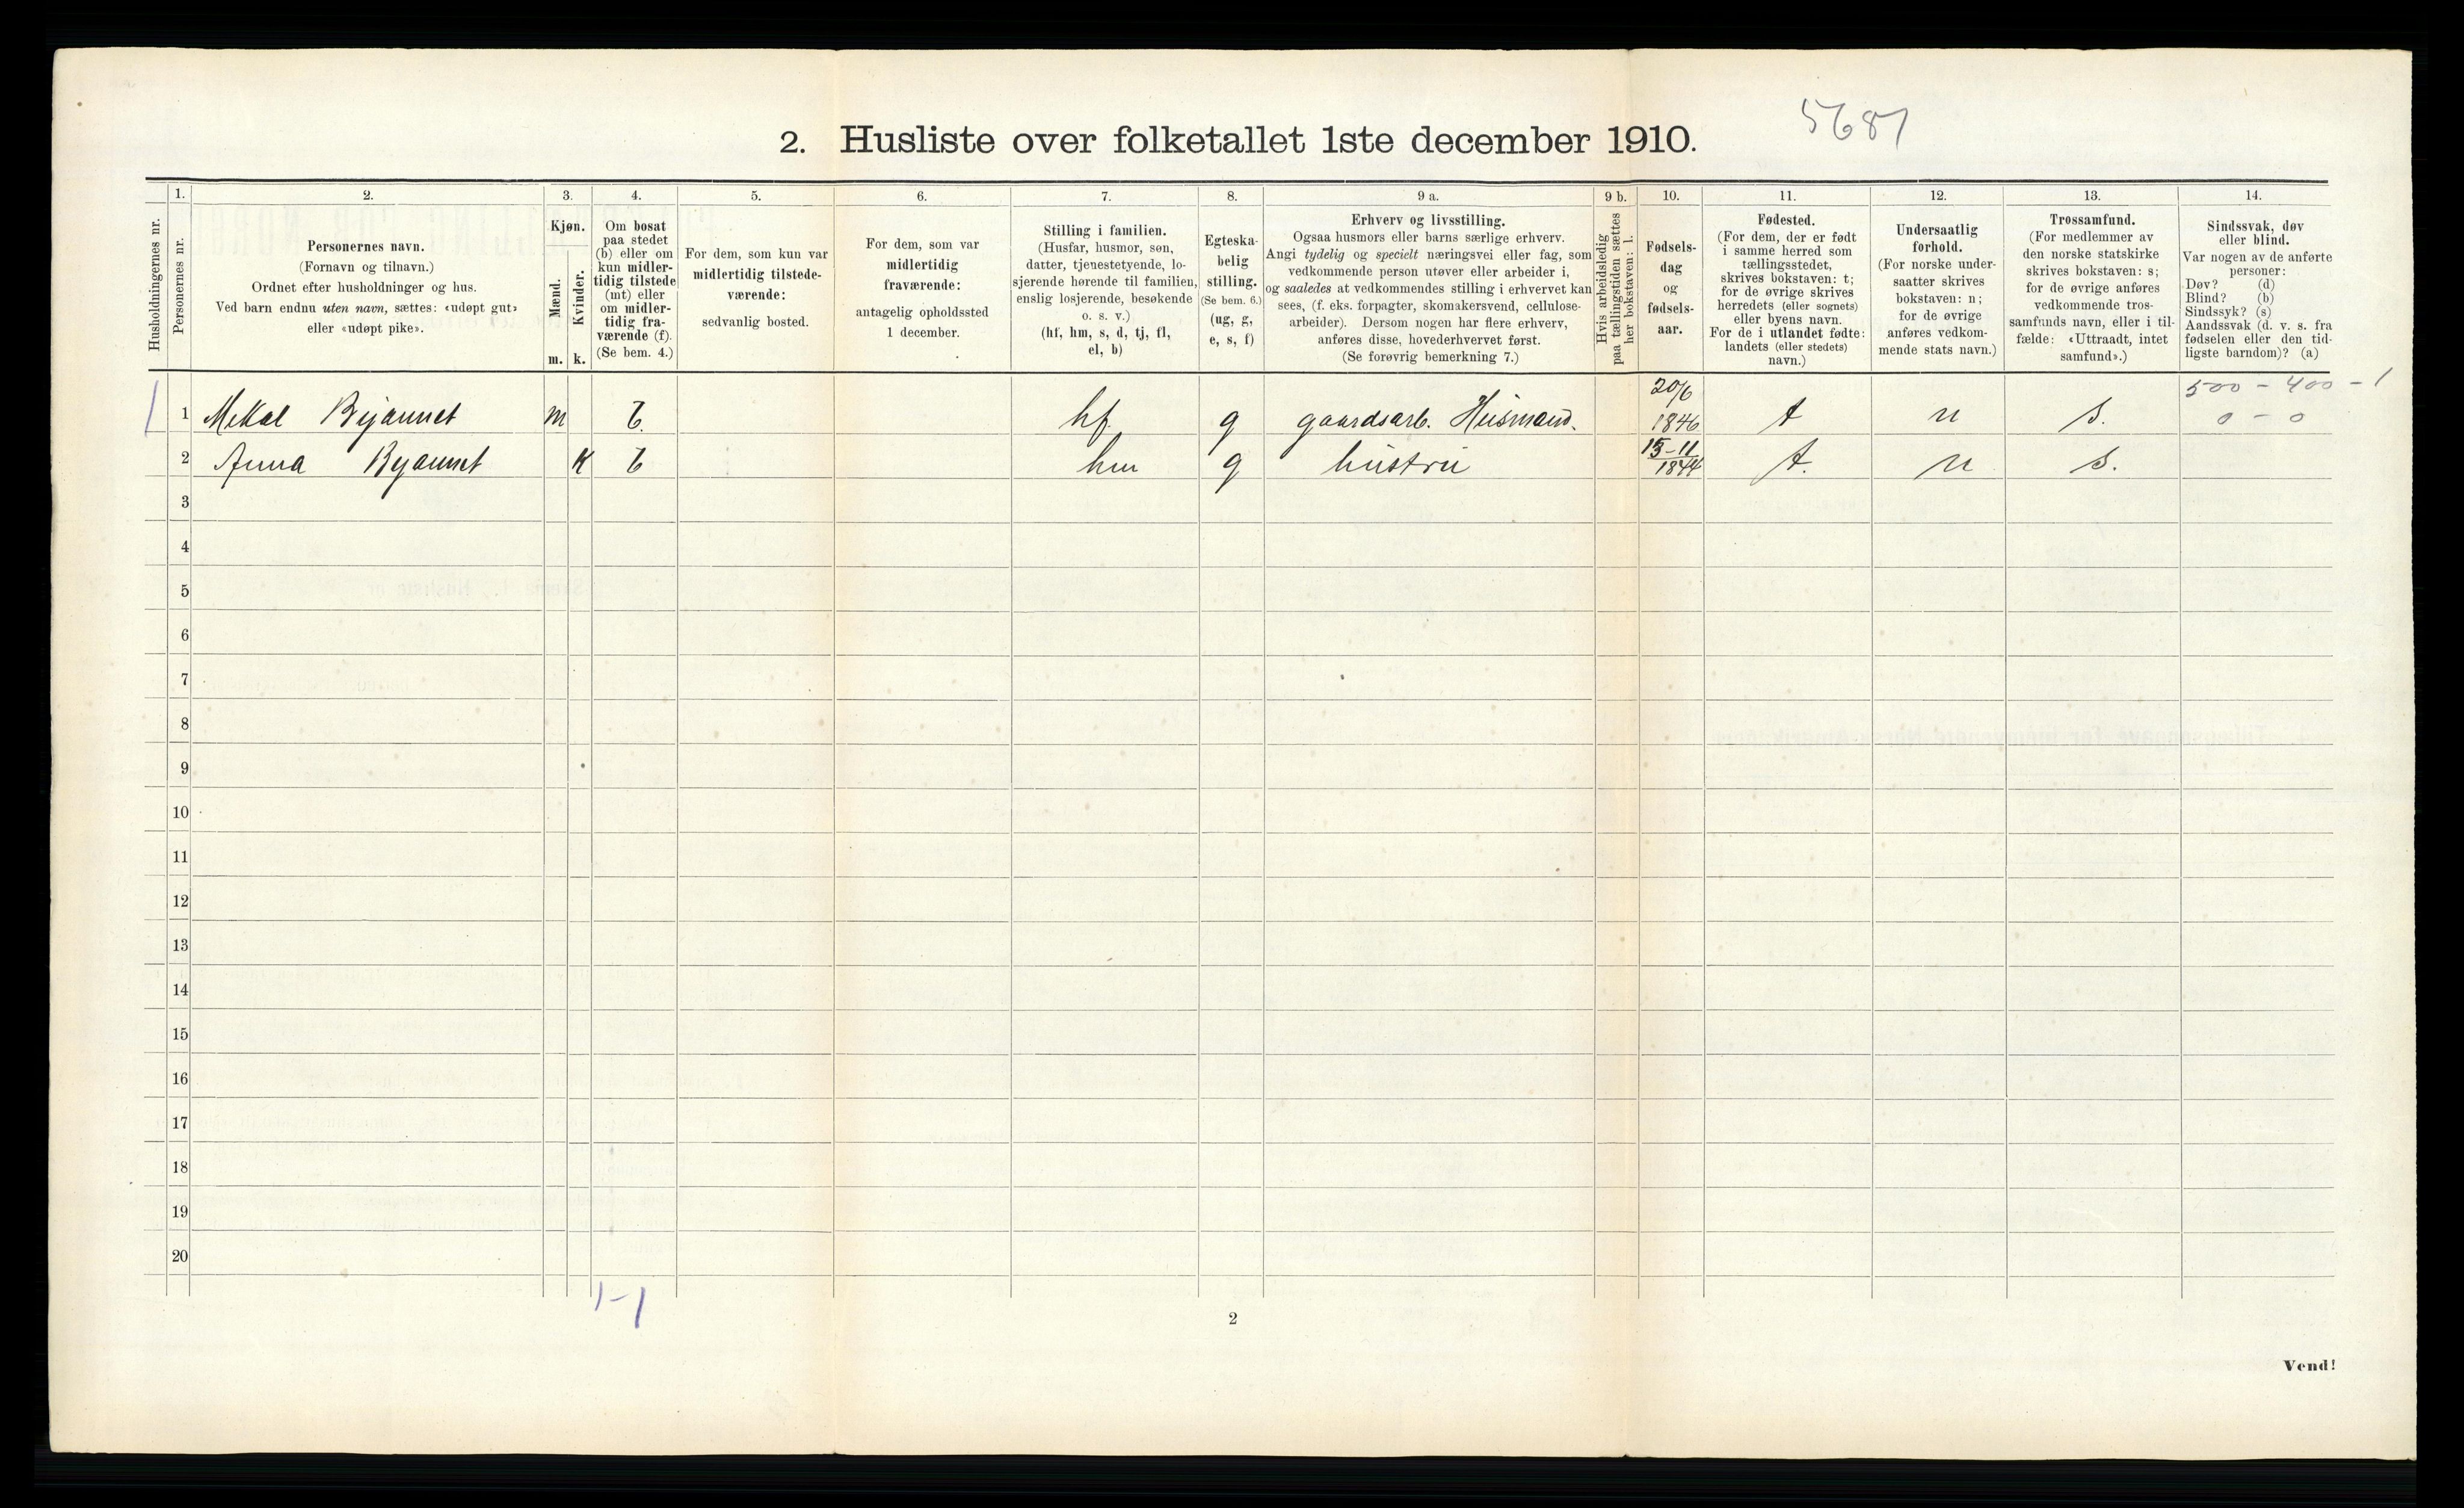 5681
2. Husliste over folketallet 1ste december 1910.
Husholdningernes nr.
1.
Personernes nr.
2.
Personernes navn.
(Fornavn og tilnavn.)
Ordnet efter husholdninger og hus.
Ved barn endnu uten navn, sættes: «udøpt gut»
eller «udøpt pike».
3.
Kjøn.
Mænd.
Kvinder.
m. k.
4.
Om bosat
paa stedet
(b) eller om
kun midler-
tidig tilstede
(mt) eller
om midler-
tidig fra-
værende (f).
(Se bem. 4.)
5.
For dem, som kun var
midlertidig tilstede-
værende:
sedvanlig bosted.
6.
For dem, som var
midlertidig
fraværende:
antagelig opholdssted
1 december.
7.
Stilling i familien.
(Husfar, husmor, søn,
datter, tjenestetyende, lo-
sjerende hørende til familien,
enslig losjerende, besøkende
o. s. v.)
(hf, hm, s, d, tj, fl,
el, b)
8.
Egteska-
belig
stilling.
(Se bem. 6.)
(ug, g,
e, s, f)
9 a.
Erhverv og livsstilling.
Ogsaa husmors eller barns særlige erhverv.
Angi tydelig og specielt næringsvei eller fag, som
vedkommende person utøver eller arbeider i,
og saaledes at vedkommendes stilling i erhvervet kan
sees, (f. eks. forpagter, skomakersvend, cellulose-
arbeider). Dersom nogen har flere erhverv,
anføres disse, hovederhvervet først.
(Se forøvrig bemerkning 7.)
9 b.
Hvis arbeidsledig
paa tællingstiden sættes
her bokstaven: l.
10.
Fødsels-
dag
og
fødsels-
aar.
11.
Fødested.
(For dem, der er født
i samme herred som
tællingsstedet,
skrives bokstaven: t;
for de øvrige skrives
herredets (eller sognets)
eller byens navn.
For de i utlandet fødte:
landets (eller stedets)
navn.)
12.
Undersaatlig
forhold.
(For norske under-
saatter skrives
bokstaven: n;
for de øvrige
anføres vedkom-
mende stats navn.)
13.
Trossamfund.
(For medlemmer av
den norske statskirke
skrives bokstaven: s;
for de øvrige anføres
vedkommende tros-
samfunds navn, eller i til-
fælde: «Uttraadt, intet
samfund».)
14.
Sindssvak, døv
eller blind.
Var nogen av de anførte
personer:
Døv? (d)
Blind? (b)
Sindssyk? (s)
Aandssvak (d. v. s. fra
fødselen eller den tid-
ligste barndom)? (a)
20/6 500 - 400 - 1
1 1 Mekal m b. hf. g gaardsarb. Husmand. 1846 t n s. 0 - 0
15-11
2 Anna k b hm g hustru 1844 t. n s.
3
4
5
6
7
8
9
10
11
12
13
14
15
16
17
18
19
20
1-1
2
Vend!